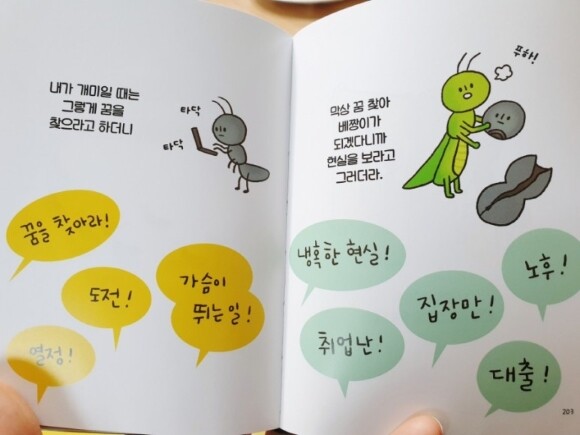 내가 개미일 때는
그렇게 꿈을
찾으라고 하더니
타닥
타닥
꿈을 찾아라!
도전!
가슴이
뛰는 일!
열정!
푸하!
막상 꿈 찾아
베짱이가
되겠다니까
현실을 보라고
그러더라.
냉혹한 현실!
노후!
집장만!
취업난!
대출!
203